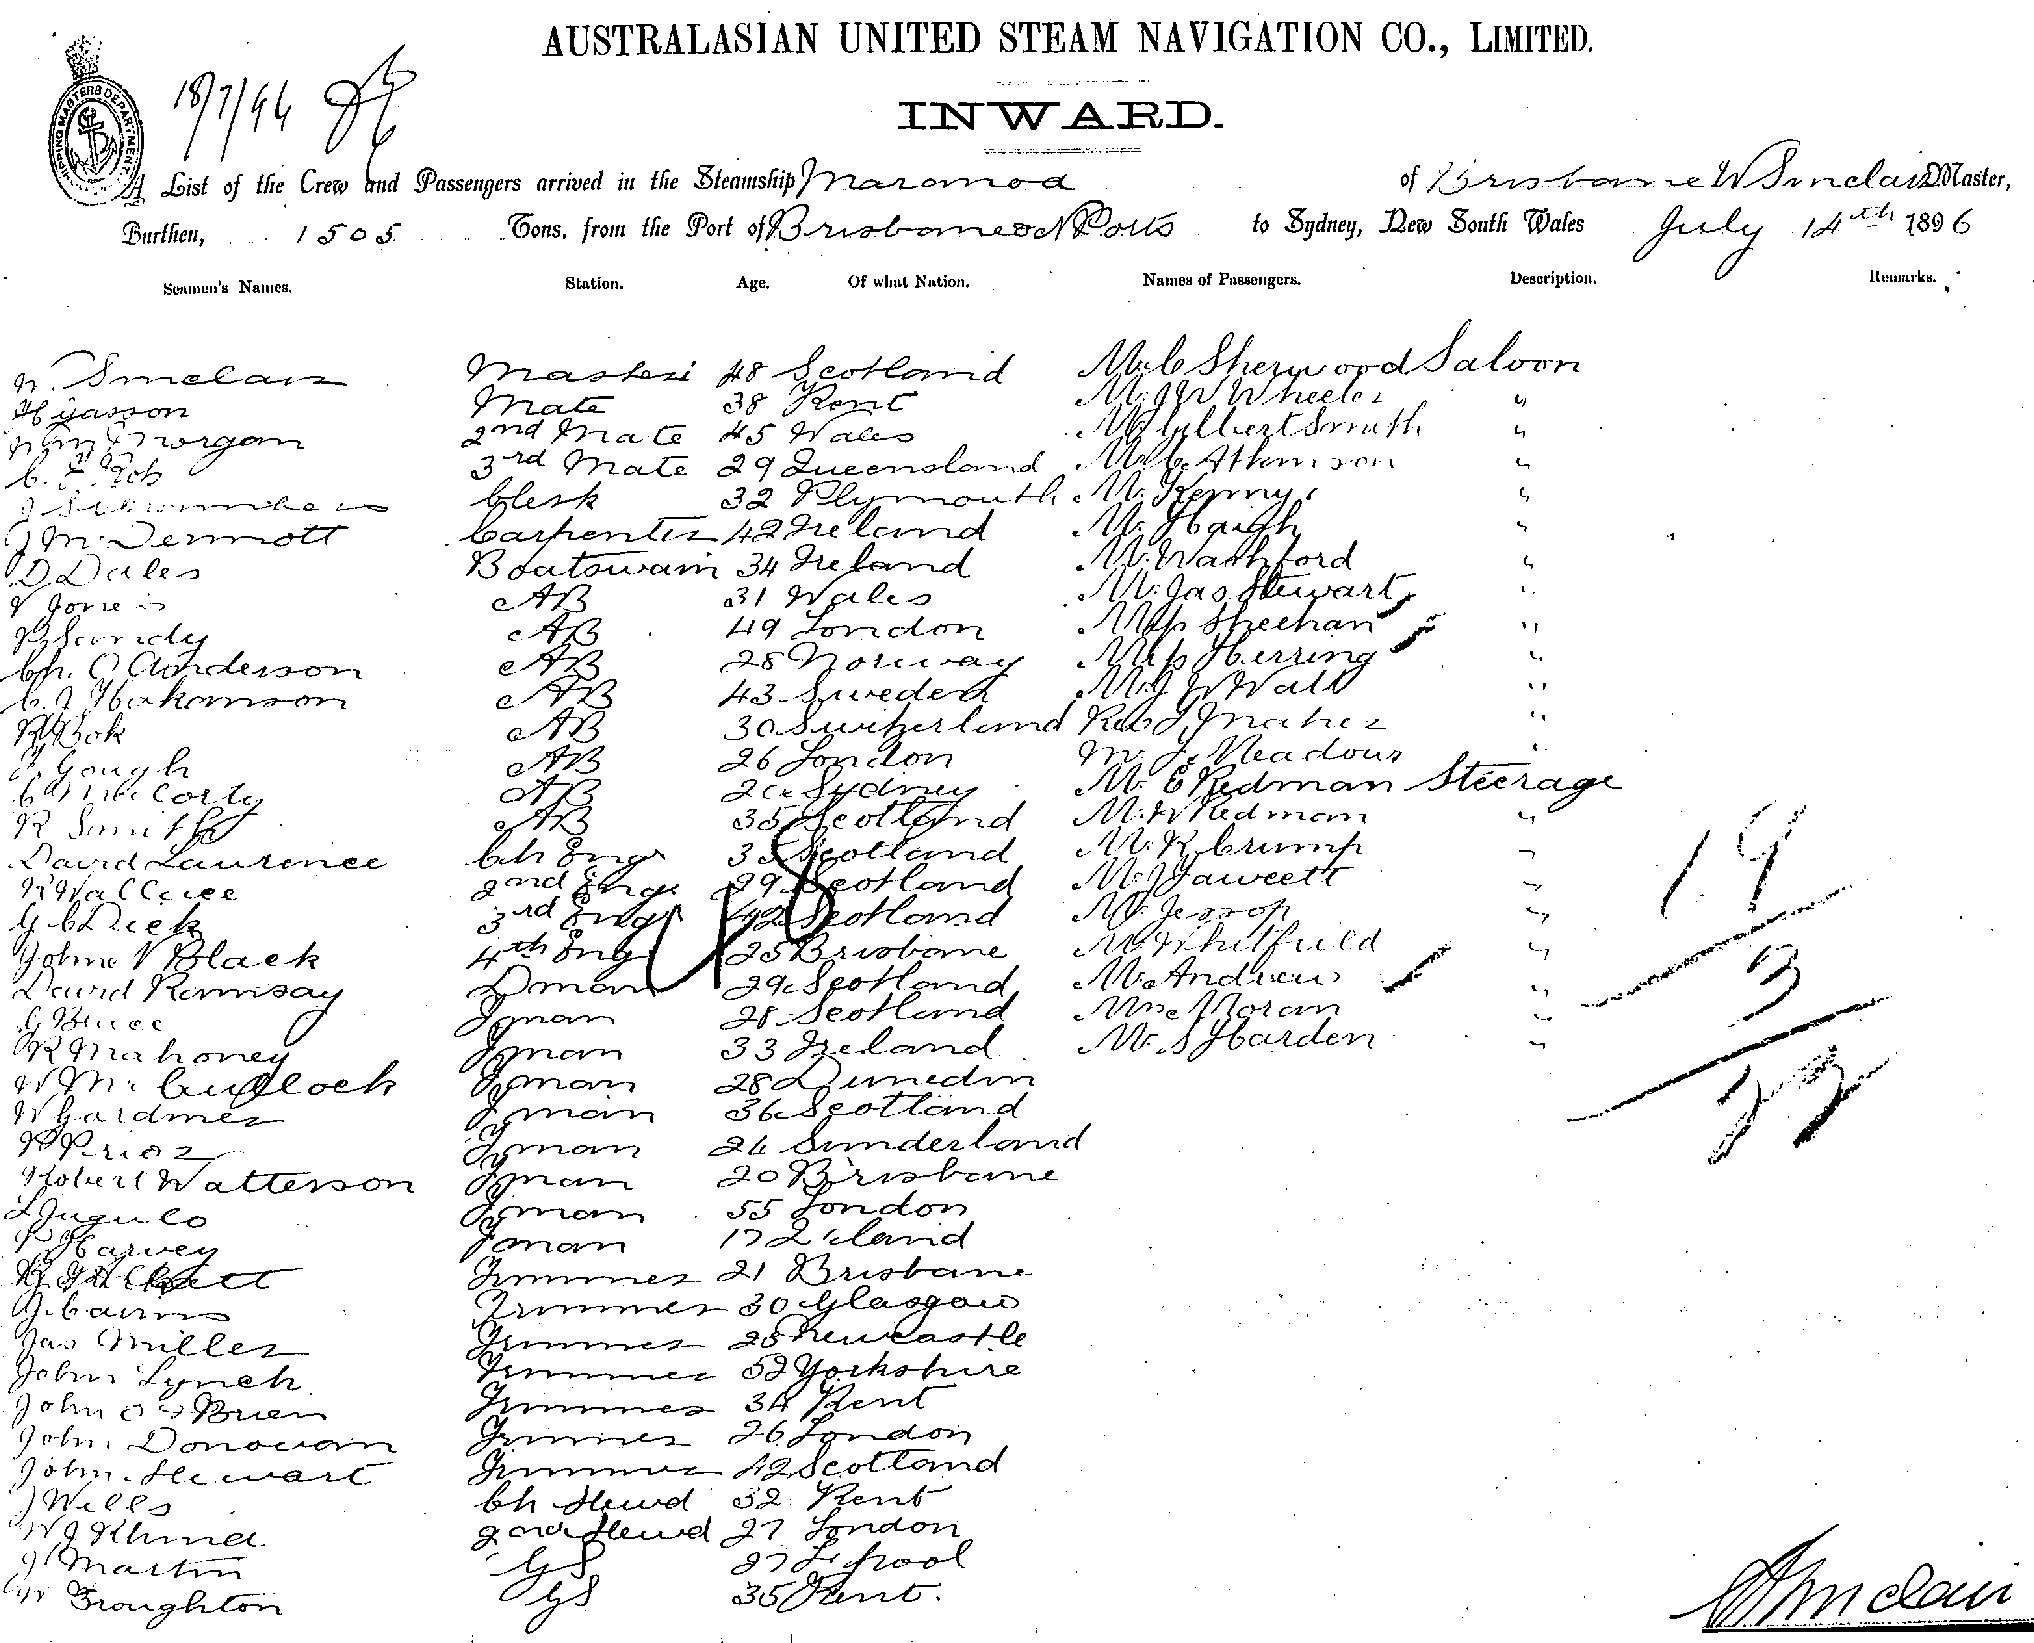 AUSTRALASIAN UNITED STEAM NAVIGATION CO., LIMITED.
18/7/96
INWARD.
SHIPPING MASTERS DEPARTMENT
A List of the Crew and Passengers arrived in the Steamship Maranoa of Brisbane W Sinclair Master,
Burthen, 1505 Tons, from the Port of Brisbane & N Ports to Sydney, New South Wales July 14th 1896
Seamen's Names. Station. Age. Of what Nation. Names of Passengers. Description. Remarks.
W. Sinclair Master 48 Scotland Mr C Sherwood Saloon
H Gasson Mate 38 Kent Mr J W Wheeler "
Wm Morgan 2nd Mate 45 Wales Mr Gilbert Smith "
C. E. Rob 3rd Mate 29 Queensland Mr C Atkinson "
J Clerk 32 Plymouth Mr Kenny "
J McDermott Carpenter 42 Ireland Mr Haigh "
D Dales Boatswain 34 Ireland Mr Washford "
Jones AB 31 Wales Mr Jas Stewart "
P Sandy AB 49 London Sheehan "
Ch. O Anderson AB 28 Norway Herring "
C. J Hakanson AB 43 Sweden Mr J W Watt "
R Bok AB 30 Switzerland Rev J Maher "
Gough AB 26 London Mr J. Meadows "
McCorty AB Sydney Mr E Redman Steerage
R Smith AB 35 Scotland Mr W Redman "
David Laurence Ch Engr 35 Scotland Mr R Crump "
R Wallace 2nd Engr 29 Scotland Mr J Fawcett "
G C Dick 3rd Engr 42 Scotland Mr Jessop "
John V Black 4th Eng 25 Brisbane Mr Whitfield "
David Ramsay Dman 29 Scotland Mr Andrews "
G Bruce Fman 28 Scotland Moran "
R Mahoney Fman 33 Ireland Mr S Harden "
W McCullock Fman 28 Dunedin
W Gardiner Fman 36 Scotland
R Prior Fman 24 Sunderland
Robert Watterson Fman 20 Brisbane
Fman 55 London
Harvey Fman 17
Trimmer 21 Brisbane
J. Cairns Trimmer 30 Glasgow
Jas Miller Trimmer 25 Newcastle
John Lynch Trimmer 52 Yorkshire
John O'Brien Trimmer 34 Kent
John Donovan Trimmer 26 London
John Stewart Trimmer 42 Scotland
J Wills Ch Stewd 32 Kent
W J 2nd Stewd 27 London
J Martin GS 27 L'pool
W Broughton GS 35 Kent.
48
19
3
22
W Sinclair